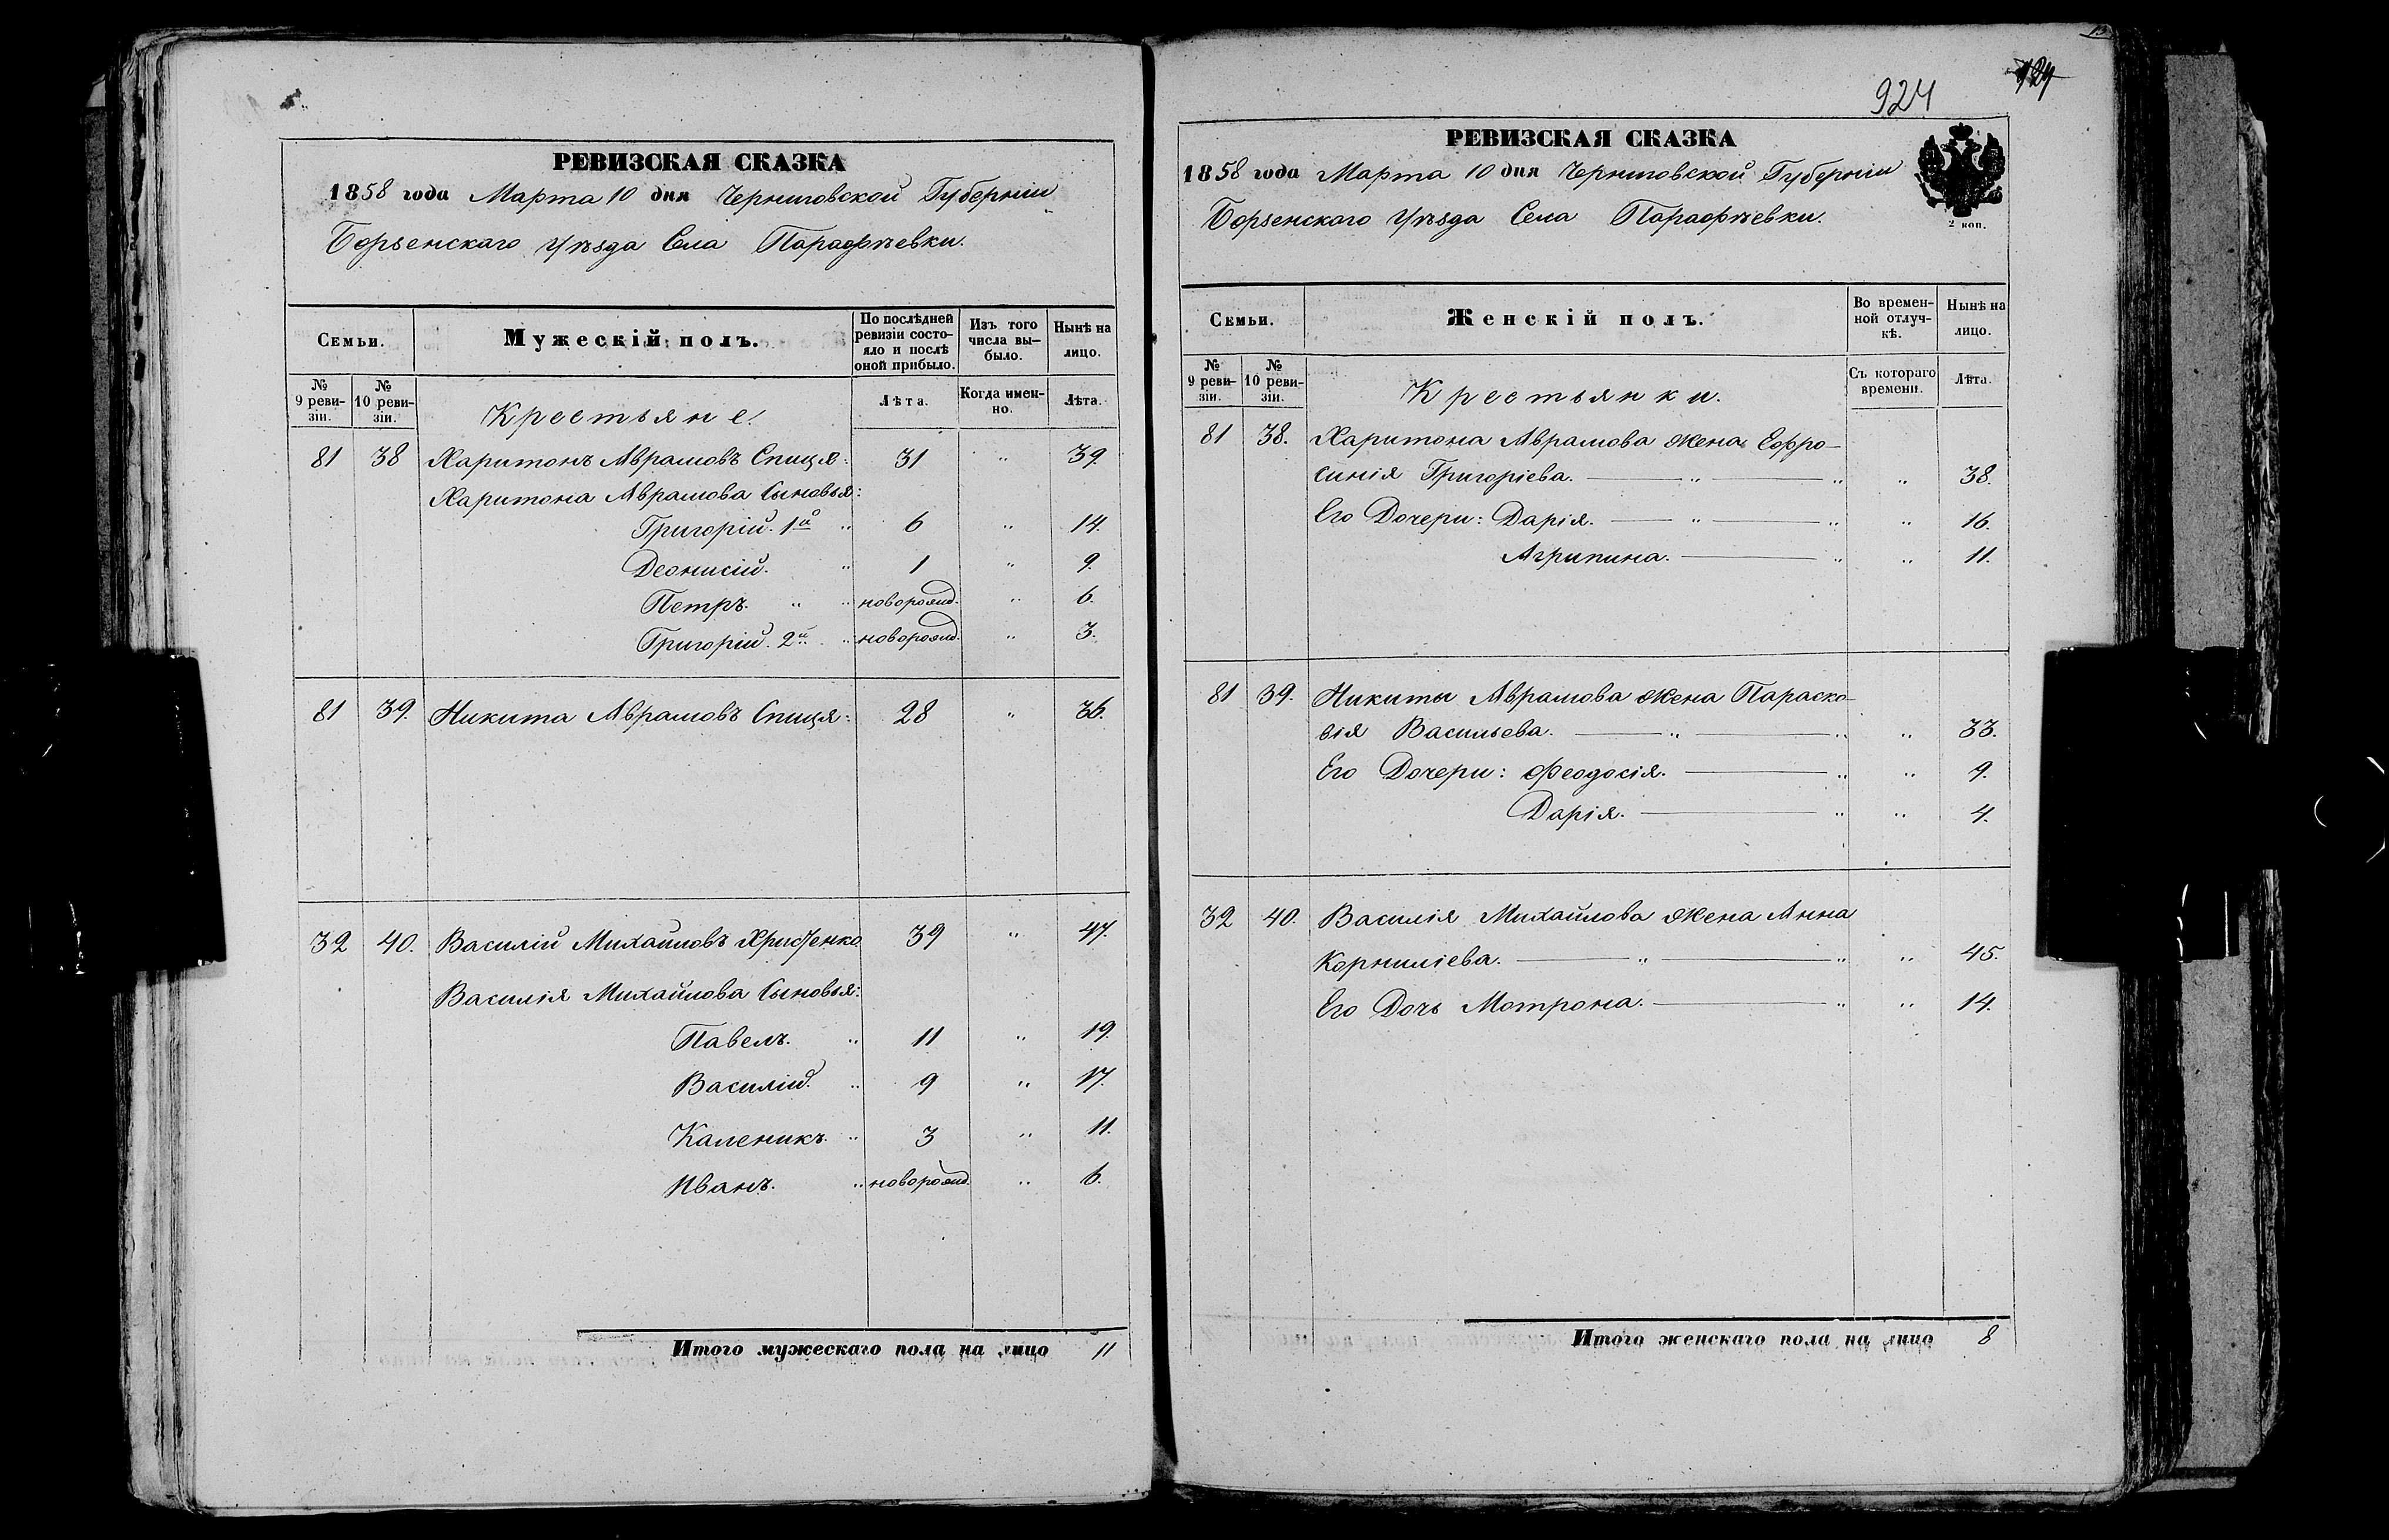 РЕВИЗСКАЯ СКАЗКА
1858 года Марта 10 дня Черниговской Губерніи
Борзенскаго Уѣзда Села Парафѣевки.
Семьи.
Мужескій полъ.
По послѣдней ревизіи состо-
яло и послѣ оной прибыло.
Изъ того числа вы-
было.
Нынѣ на лицо.
№ 9 реви-
зіи.
№ 10 реви-
зіи.
Крестьяне.
Лѣта.
Когда имен-
но.
Лѣта.
81 38 Харитонъ Аврамовъ Спица: 31 " 39.
Харитона Аврамова Сыновья:
Григорій. 1й " 6 " 14.
Деонисій. " 1 " 9.
Петръ. " " новорожд. " 6.
Григорій. 2й " новорожд. " 3.
81 39. Никита Аврамовъ Спица: 28 " 36.
32 40. Василій Михайловъ 39 " 47.
Василія Михайлова Сыновья:
Павелъ. " 11 " 19.
Василій. " 9 " 17.
Каленикъ. " 3 " 11.
Иванъ. " новорожд. " 6.
Итого мужескаго пола на лицо 11
924
РЕВИЗСКАЯ СКАЗКА
1858 года Марта 10 дня Черниговской Губерніи
Борзенского Уѣзда Села Парафѣевки.
2 коп.
Семьи.
Женскій полъ.
Во времен-
ной отлуч-
кѣ.
Нынѣ на лицо.
№ 9 реви-
зіи.
№ 10 реви-
зіи.
Крестьянки.
Съ котораго времени.
Лѣта.
81 38. Харитона Аврамова жена Ефро-
синія Григоріева. " " " 38.
Его Дочери: Дарія. " " " 16.
Агрипина. " " 11.
81 39. Никиты Аврамова жена Параско-
вія Васильева. " " " 33.
Его Дочери: Феодосія. " " 9.
Дарія. " " 4.
32 40. Василія Михайлова жена Анна
Корниліева. " " " 45.
Его Дочь Мотрона. " " 14.
Итого женскаго пола на лицо 8